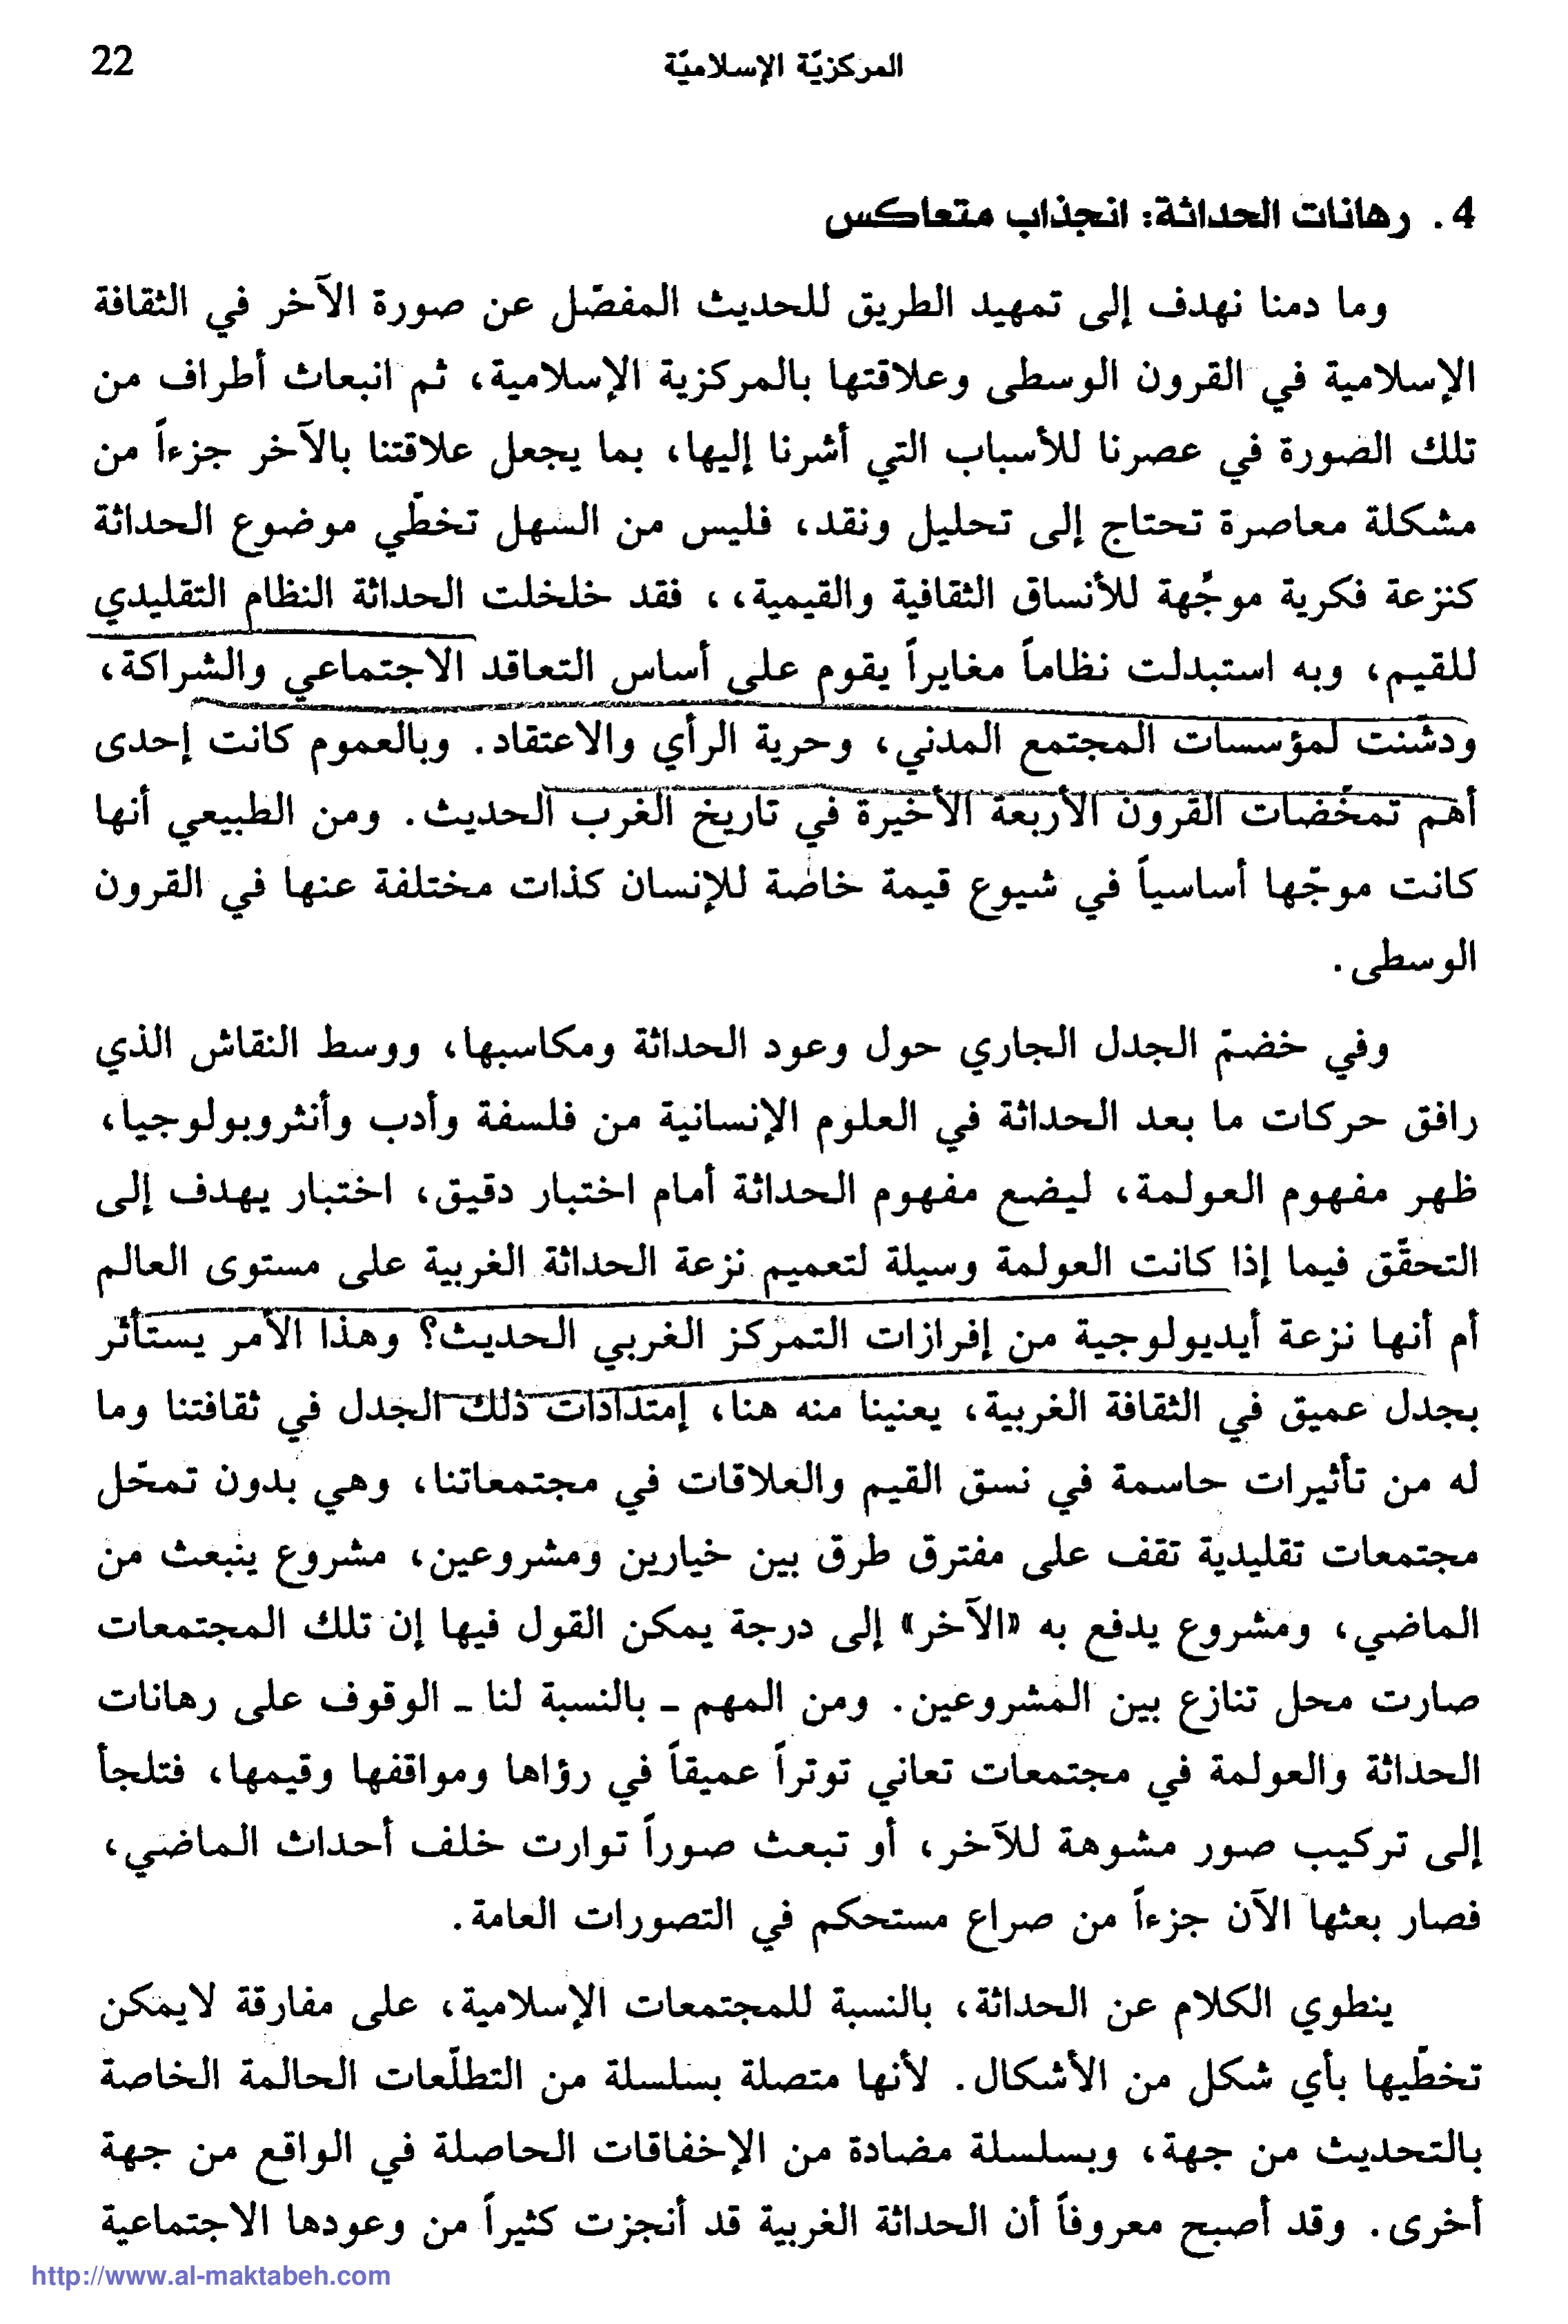 المركزيّة الإسلاميّة
22
4. رهانات الحداثة: انجذاب متعاكس
وما دمنا نهدف إلى تمهيد الطريق للحديث المفصّل عن صورة الآخر في الثقافة
الإسلامية في القرون الوسطى وعلاقتها بالمركزية الإسلامية، ثم انبعاث أطراف من
تلك الصورة في عصرنا للأسباب التي أشرنا إليها، بما يجعل علاقتنا بالآخر جزءاً من
مشكلة معاصرة تحتاج إلى تحليل ونقد، فليس من السهل تخطّي موضوع الحداثة
كنزعة فكرية موجُهة للأنساق الثقافية والقيمية،، فقد خلخلت الحداثة النظام التقليدي
للقيم، وبه استبدلت نظاماً مغايراً يقوم على أساس التعاقد الاجتماعي والشراكة،
ودشّنت لمؤسسات المجتمع المدني، وحرية الرأي والاعتقاد. وبالعموم كانت إحدى
أهم تمخّضات القرون الأربعة الأخيرة في تاريخ الغرب الحديث. ومن الطبيعي أنها
كانت موجّها أساسياً في شيوع قيمة خاصة للإنسان كذات مختلفة عنها في القرون
الوسطى.
وفي خضمّ الجدل الجاري حول وعود الحداثة ومكاسبها، ووسط النقاش الذي
رافق حركات ما بعد الحداثة في العلوم الإنسانية من فلسفة وأدب وأنثروبولوجيا،
ظهر مفهوم العولمة، ليضع مفهوم الحداثة أمام اختبار دقيق، اختبار يهدف إلى
التحقّق فيما إذا كانت العولمة وسيلة لتعميم نزعة الحداثة الغربية على مستوى العالم
أم أنها نزعة أيديولوجية من إفرازات التمركز الغربي الحديث؟ وهذا الأمر يستأثر
بجدل عميق في الثقافة الغربية، يعنينا منه هنا، إمتدادات ذلك الجدل في ثقافتنا وما
له من تأثيرات حاسمة في نسق القيم والعلاقات في مجتمعاتنا، وهي بدون تمحّل
مجتمعات تقليدية تقف على مفترق طرق بين خيارين ومشروعين، مشروع ينبعث من
الماضي، ومشروع يدفع به «الآخر» إلى درجة يمكن القول فيها إن تلك المجتمعات
صارت محل تنازع بين المشروعين. ومن المهم - بالنسبة لنا - الوقوف على رهانات
الحداثة والعولمة في مجتمعات تعاني توتراً عميقاً في رؤاها ومواقفها وقيمها، فتلجأ
إلى تركيب صور مشوهة للآخر، أو تبعث صوراً توارت خلف أحداث الماضي،
فصار بعثها الآن جزءاً من صراع مستحكم في التصورات العامة.
ينطوي الكلام عن الحداثة، بالنسبة للمجتمعات الإسلامية، على مفارقة لايمكن
تخطّيها بأي شكل من الأشكال. لأنها متصلة بسلسلة من التطلّعات الحالمة الخاصة
بالتحديث من جهة، وبسلسلة مضادة من الإخفاقات الحاصلة في الواقع من جهة
أخرى. وقد أصبح معروفاً أن الحداثة الغربية قد أنجزت كثيراً من وعودها الاجتماعية
http://www.al-maktabeh.com